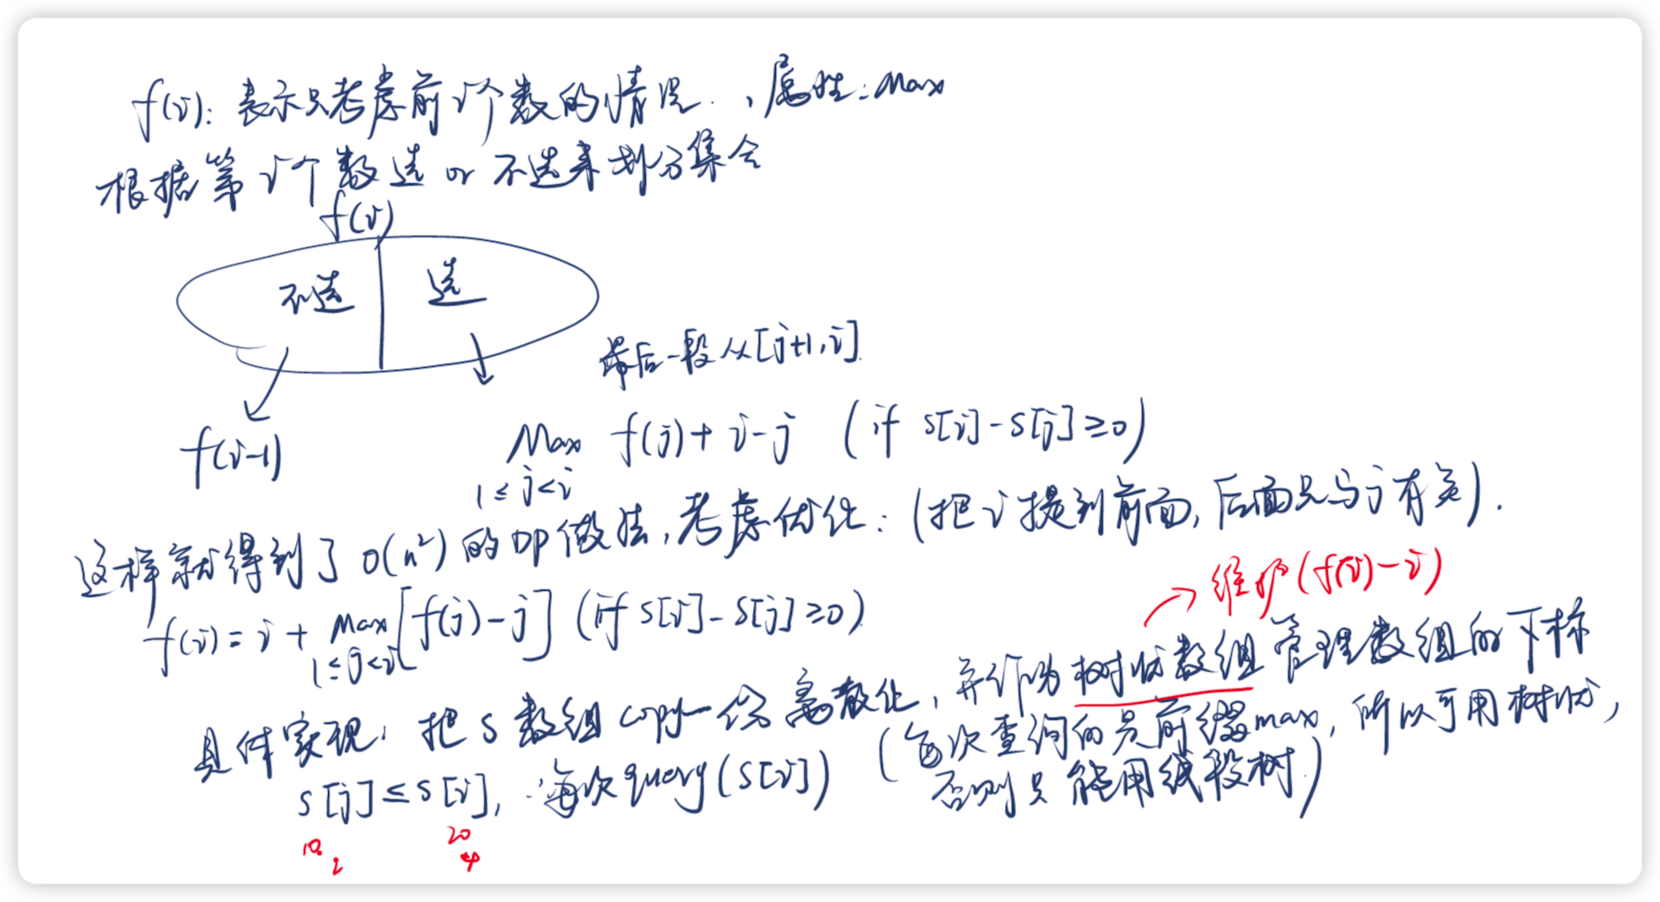 f(i): 表示只考虑前i个数的情况. , 属性: Max
根据第i个数选 or 不选来划分集合
f(i)
不选 选
最后一段从[j+1,i].
f(i-1)
Max f(j)+i-j (if s[i]-s[j]≥0)
1≤j<i
这样就得到了O(n²)的DP做法,考虑优化: (把i提到前面,后面只与j有关).
→维护(f(i)-i)
f(i)=i+Max[f(j)-j] (if s[i]-s[j]≥0)
1≤j<i
具体实现: 把s数组copy一份离散化, 并作为树状数组管理数组的下标
s[j]≤s[i], ∴每次query(s[i]) (每次查询的是前缀max, 所以可用树状,
否则只能用线段树)
10 20
2 4